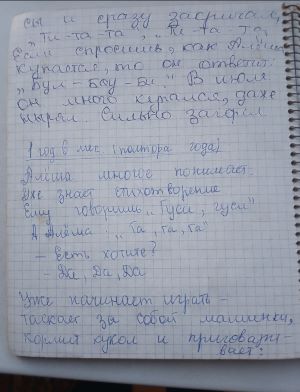 сы и сразу закричал,
„Ти-та-та", „Ти-та-та,
Если спросишь, как Алёша
купается, то он ответит:
„Бул-Бу-Бы". В июле
он много купался, даже
нырял. Сильно загорел.
1 год 6 мес (полтора года)
Алёша многое понимает.
Уже знает стихотворение
Ему говоришь „Гуси, гуси"
А Алёша: „Га, га, га"
- Есть хотите?
- Да, Да, Да
Уже начинает играть -
таскает за собой машинки,
кормит кукол и приговари-
вает: